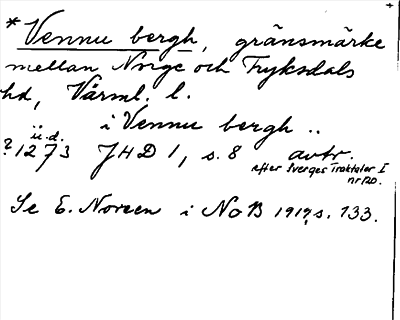 * Vennu bergh, gränsmärke
mellan Norge och Fryksdals
hd, Värml. l.
i Vennu bergh ..
u.d.
? 1273 JHD 1, s. 8 avtr.
efter Sverges Traktater I
nr 120.
Se E. Noreen i NoB 1919, s. 133.